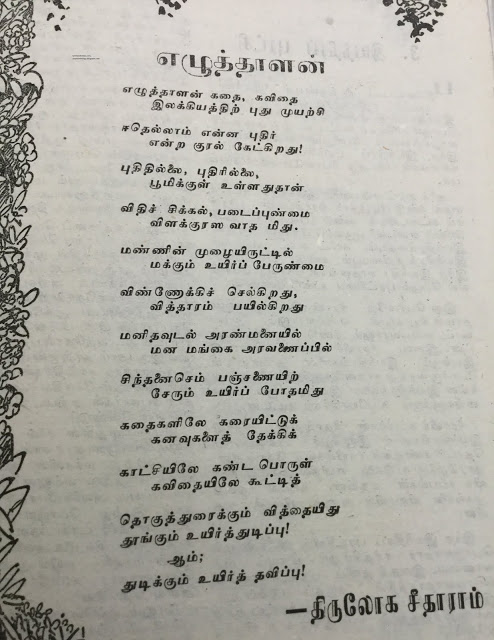 எழுத்தாளன்
எழுத்தாளன் கதை, கவிதை
இலக்கியத்திற் புது முயற்சி
ஈதெல்லாம் என்ன புதிர்
என்ற குரல் கேட்கிறது!
புதிதில்லை, புதிரில்லை,
பூமிக்குள் உள்ளதுதான்
விதிச் சிக்கல், படைப்புண்மை
விளக்குரஸ வாத மிது.
மண்ணின் முழையிருட்டில்
மக்கும் உயிர்ப் பேருண்மை
விண்ணோக்கிச் செல்கிறது,
வித்தாரம் பயில்கிறது
மனிதவுடல் அரண்மனையில்
மன மங்கை அரவணைப்பில்
சிந்தனைசெம் பஞ்சணையிற்
சேரும் உயிர்ப் போதமிது
கதைகளிலே கரையிட்டுக்
கனவுகளைத் தேக்கிக்
காட்சியிலே கண்ட பொருள்
கவிதையிலே கூட்டித்
தொகுத்துரைக்கும் வித்தையிது
தூங்கும் உயிர்த்துடிப்பு!
ஆம்;
துடிக்கும் உயிர்த் தவிப்பு!
—திருலோக சீதாராம்